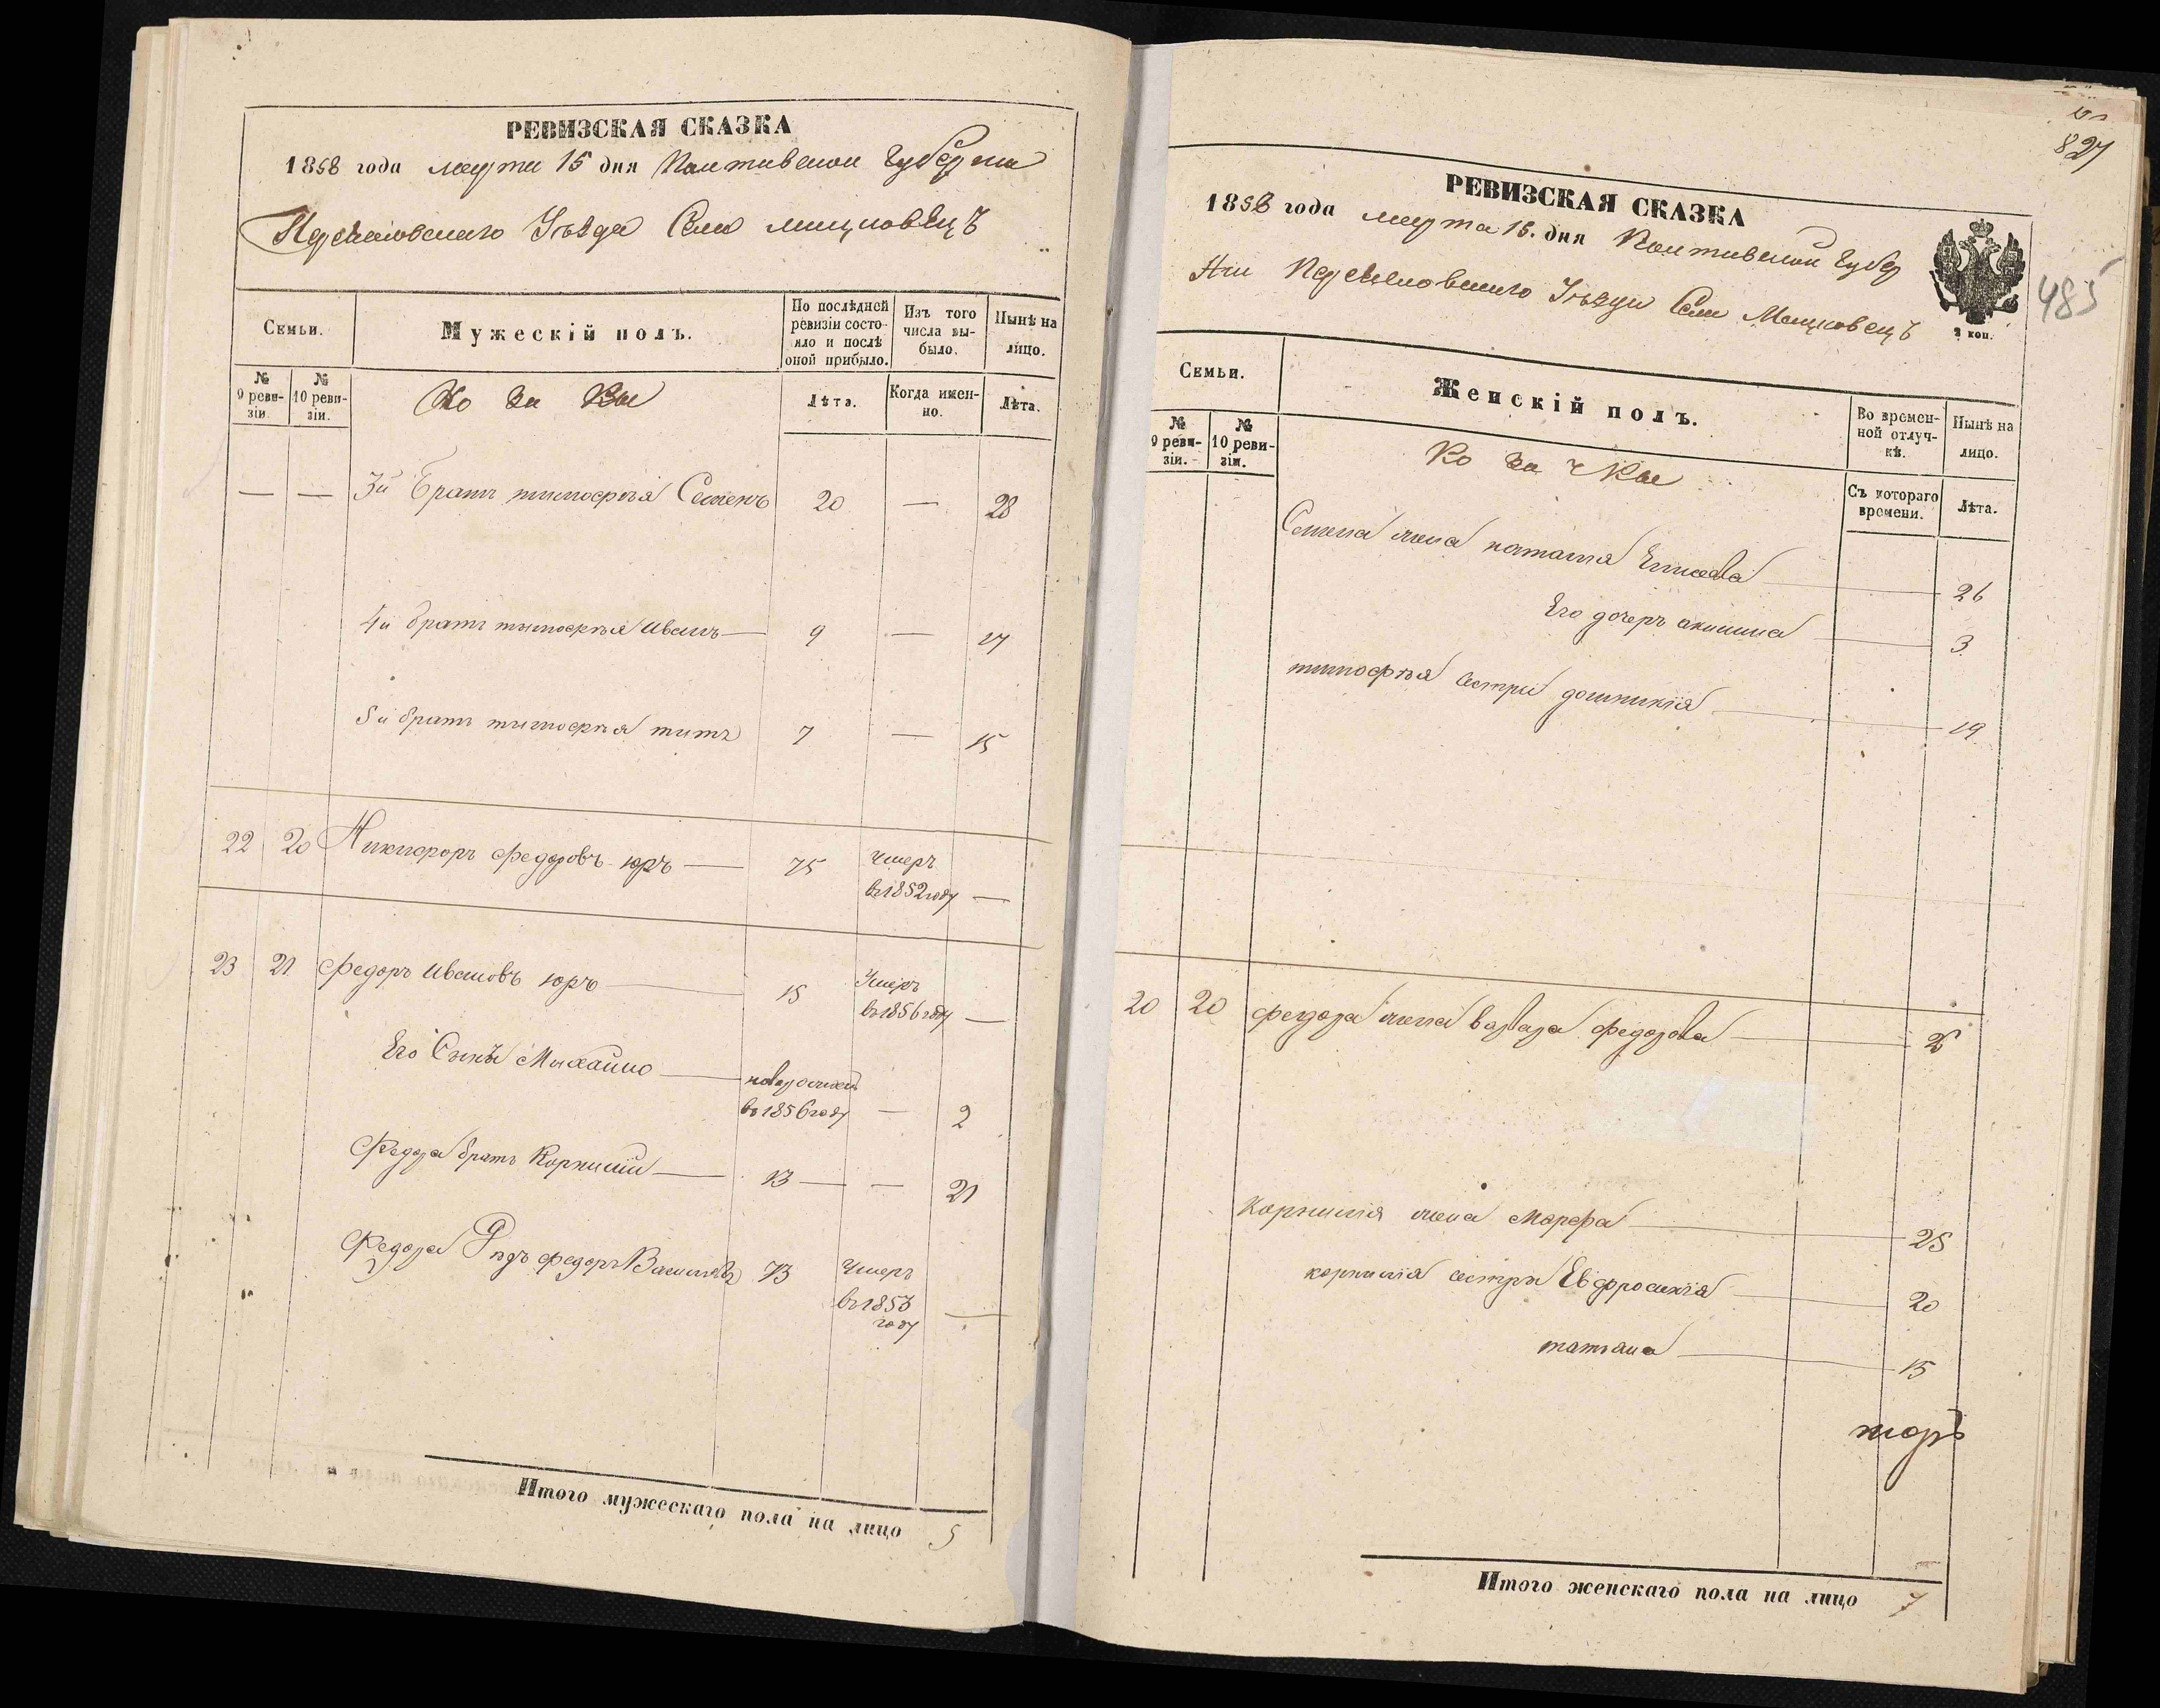 РЕВИЗСКАЯ СКАЗКА
1858 года марта 15 дня Полтавской Губернии
Переяловского Уѣзда Села мацковецъ
Семьи.
Мужескій полъ.
По послѣдней ревизіи состояло и послѣ оной прибыло.
Изъ того числа выбыло.
Нынѣ на лицо.
№ 9 ревизіи.
№ 10 ревизіи.
Ко за ки
Лѣта.
Когда именно.
Лѣта.
— — 3й Братъ тимофѣя Семенъ 20 — 28
4й братъ тимофѣя Иванъ — 9 — 17
5й братъ тимофѣя титъ 7 — 15
22 20 Никифоръ федоровъ юръ — 75 умеръ в 1852 году —
23 21 Федоръ Ивановъ юръ — 15 Умеръ въ 1856 году —
Его Сынъ Михайло — новорожден въ 1856 году — 2
Федора братъ Корнилій — 13 — — 21
Федора Дядъ федоръ Василіевъ 73 Умеръ въ 1853 году —
Итого мужескаго пола на лицо 5
827
485
РЕВИЗСКАЯ СКАЗКА
1858 года марта 15. дня Полтавской Губер
нии Переяловского Уѣзда Села Мацковецъ
2 коп.
Семьи.
Женскій полъ.
Во временной отлучкѣ.
Нынѣ на лицо.
№ 9 ревизіи.
№ 10 ревизіи.
Ко за чки
Съ котораго времени.
Лѣта.
Семена жена наталія Елисеева — 26
Его дочеръ акилина — 3
тимофѣя сестра домникія — 19
20 20 федора жена варвара федорова —
Корнилія жена Марфа — 25
корнилія сестры Евфросинія — 20
татіана — 15
юоръ
Итого женскаго пола на лицо 7